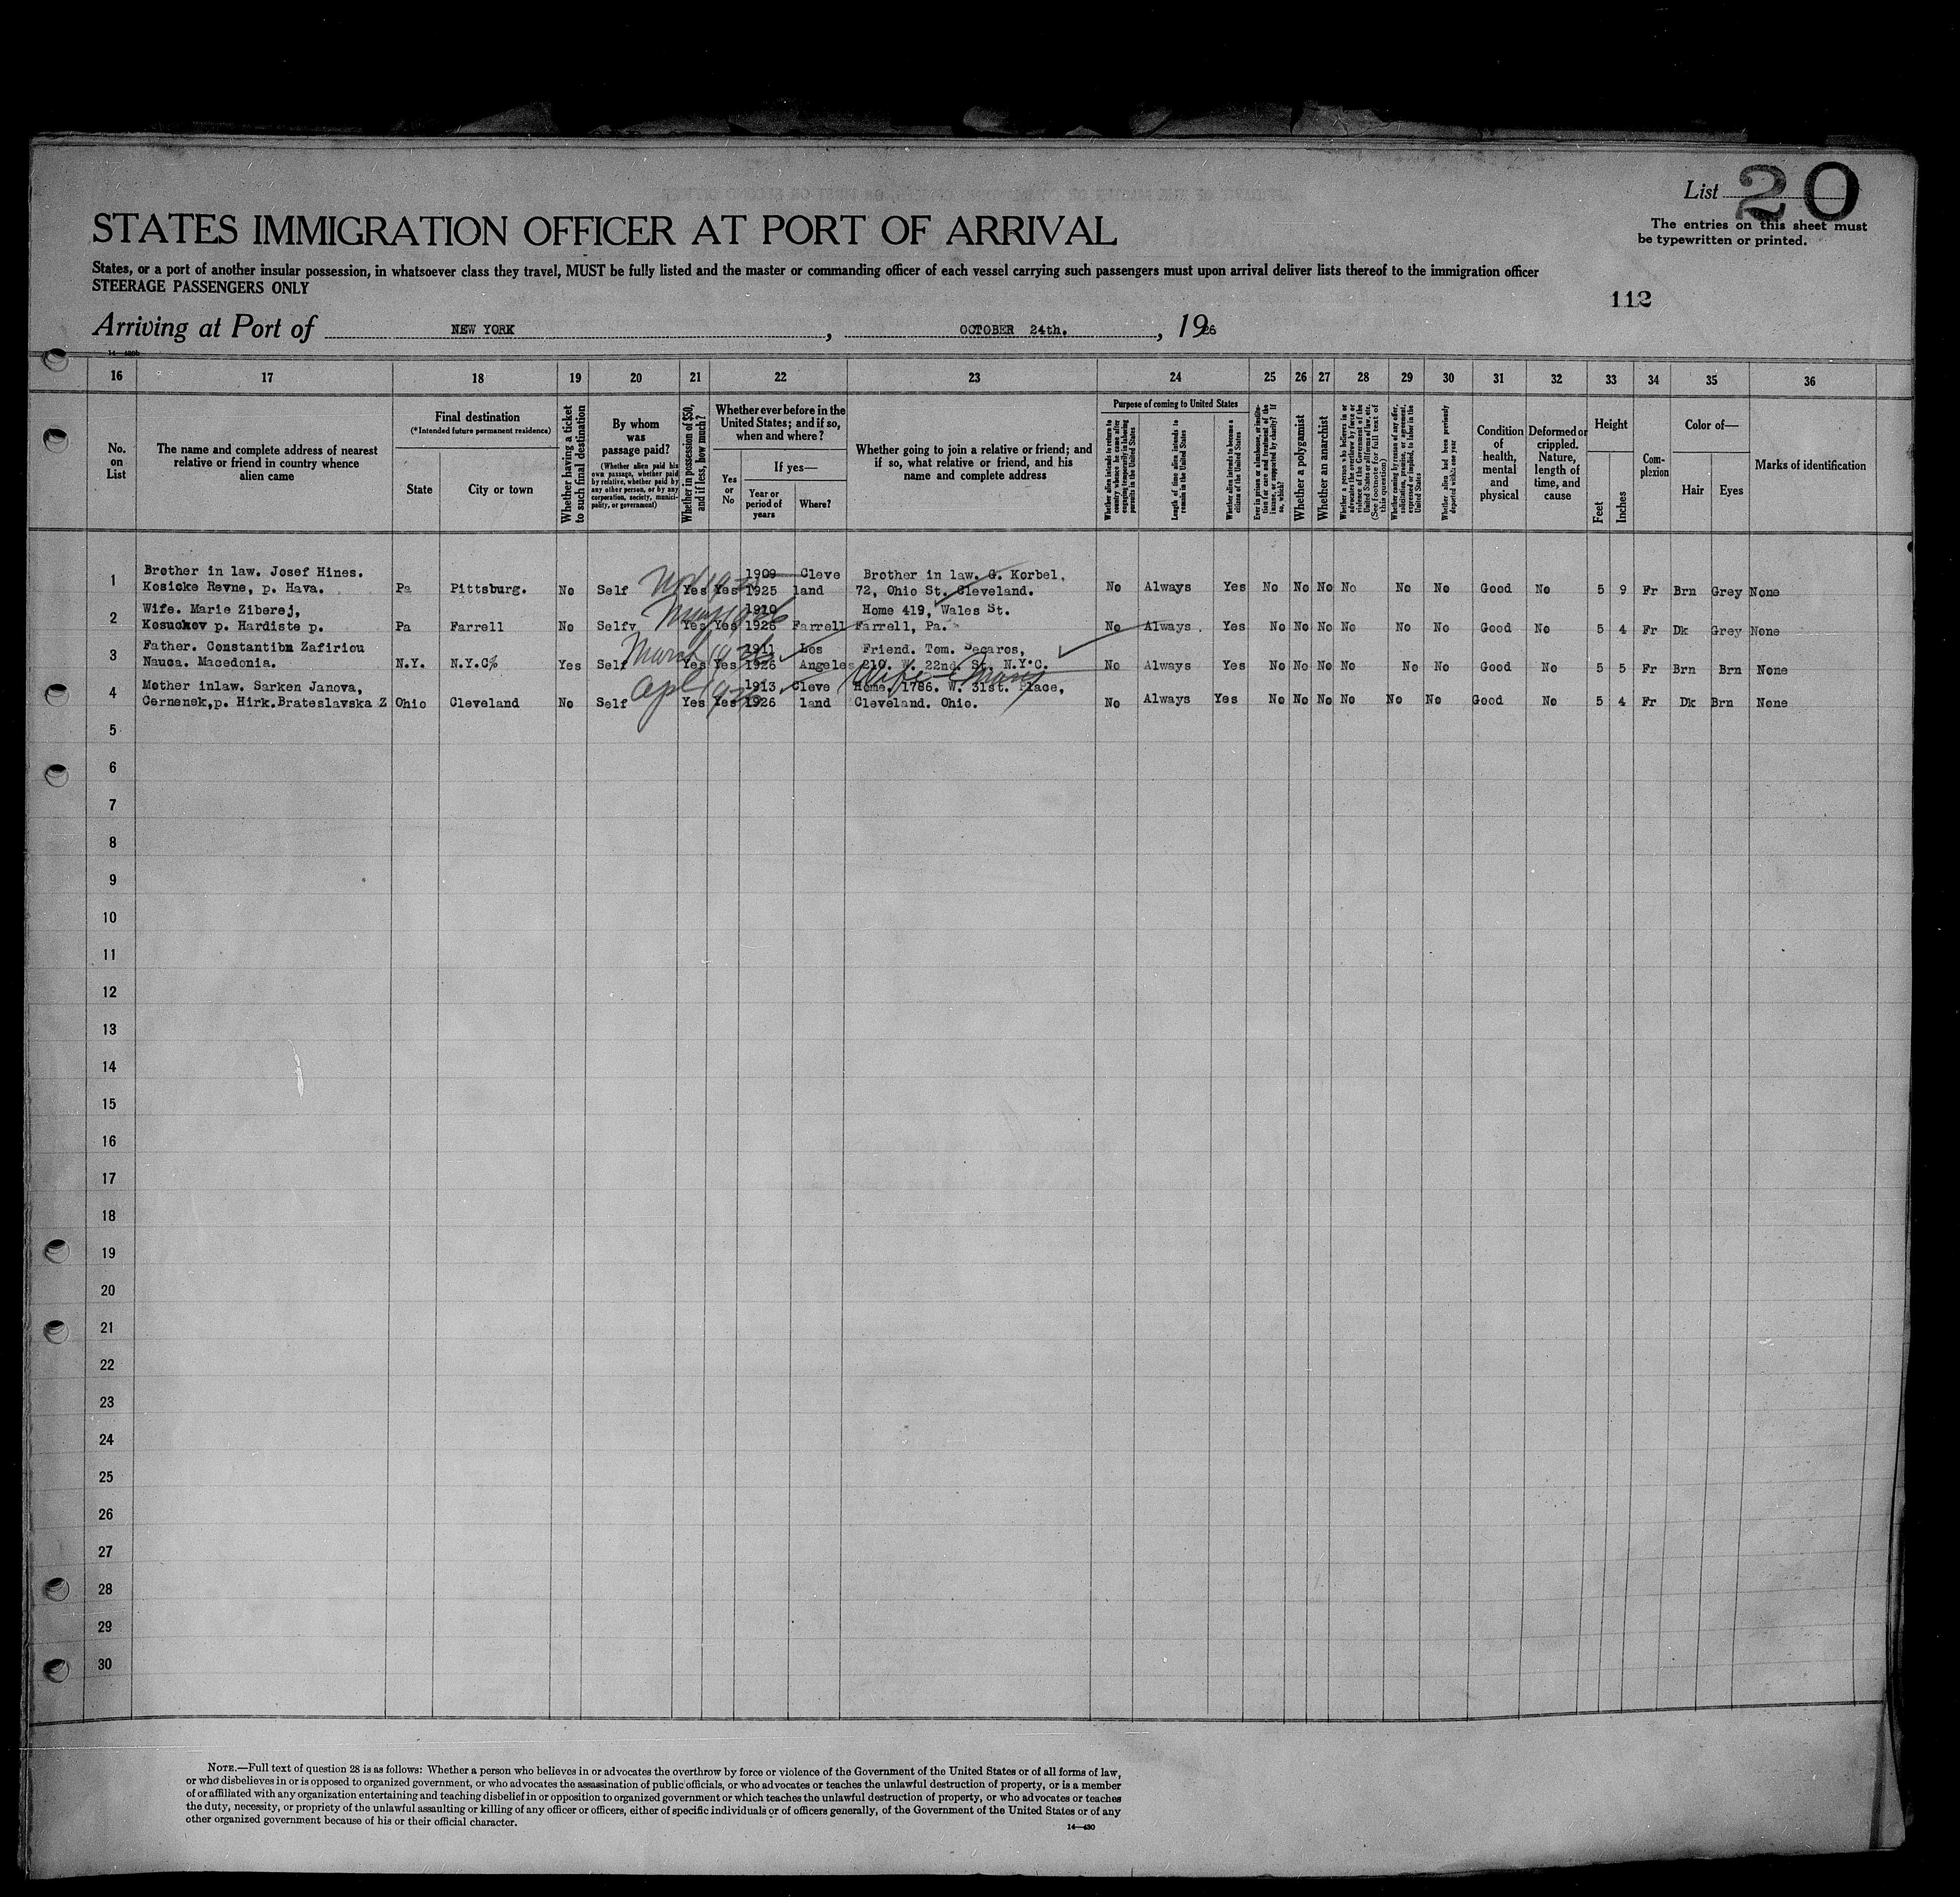 List 20
The entries on this sheet must
be typewritten or printed.
STATES IMMIGRATION OFFICER AT PORT OF ARRIVAL
States, or a port of another insular possession, in whatsoever class they travel, MUST be fully listed and the master or commanding officer of each vessel carrying such passengers must upon arrival deliver lists thereof to the immigration officer
STEERAGE PASSENGERS ONLY
112
Arriving at Port of NEW YORK, OCTOBER 24th., 1926
16 17 18 19 20 21 22 23 24 25 26 27 28 29 30 31 32 33 34 35 36
No.
on
List
The name and complete address of nearest
relative or friend in country whence
alien came
Final destination
(*Intended future permanent residence)
State
City or town
Whether having a ticket
to such final destination
By whom
was
passage paid?
(Whether alien paid his
own passage, whether paid
by relative, whether paid by
any other person, or by any
corporation, society, munici-
pality, or government)
Whether in possession of $50,
and if less, how much?
Whether ever before in the
United States; and if so,
when and where?
Yes
or
No
If yes—
Year or
period of
years
Where?
Whether going to join a relative or friend; and
if so, what relative or friend, and his
name and complete address
Purpose of coming to United States
Whether alien intends to return to
country whence he came after
engaging temporarily in laboring
pursuits in the United States
Length of time alien intends to
remain in the United States
Whether alien intends to become a
citizen of the United States
Ever in prison or almshouse, or institu-
tion for care and treatment of the
insane, or supported by charity? If
so, which?
Whether a polygamist
Whether an anarchist
Whether a person who believes in or
advocates the overthrow by force or
violence of the Government of the
United States or all forms of law, etc.
(See footnote for full text of
this question)
Whether coming by reason of any offer,
solicitation, promise, or agreement,
expressed or implied, to labor in the
United States
Whether alien had been previously
deported within one year
Condition
of
health,
mental
and
physical
Deformed or
crippled.
Nature,
length of
time, and
cause
Height
Feet
Inches
Com-
plexion
Color of—
Hair
Eyes
Marks of identification
Brother in law. Josef Hines. 1909 Cleve Brother in law. G. Korbel,
1 Kosicke Revne, p. Hava. Pa Pittsburg. No Self Yes Yes 1925 land 72, Ohio St. Cleveland. No Always Yes No No No No No No Good No 5 9 Fr Brn Grey None
Wife. Marie Ziberej, 1910 Home 419, Wales St.
2 Kosuckov p. Hardiste p. Pa Farrell No Selfv Yes Yes 1926 Farrell Farrell, Pa. No Always. Yes No No No No No No Good No 5 4 Fr Dk Grey None
Father. Constantibn Zafiriou March 1926 1911 Los Friend. Tom. Secaros,
3 Nauca. Macedonia. N.Y. N.Y.C% Yes Self Yes Yes 1926 Angeles 210. W. 22nd. St. N.Y.C. No Always Yes No No No No No No Good No 5 5 Fr Brn Brn None
Mother inlaw. Sarken Janova, Apl 1926 1913 Cleve Home, 1786. W. 31st. Place, Wife - Mary
4 Cernenek,p. Hirk.Brateslavska Z Ohio Cleveland No Self Yes Yes 1926 land Cleveland. Ohio. No Always Yes No No No No No No Good No 5 4 Fr Dk Brn None
5
6
7
8
9
10
11
12
13
14
15
16
17
18
19
20
21
22
23
24
25
26
27
28
29
30
NOTE.—Full text of question 28 is as follows: Whether a person who believes in or advocates the overthrow by force or violence of the Government of the United States or of all forms of law,
or who disbelieves in or is opposed to organized government, or who advocates the assassination of public officials, or who advocates or teaches the unlawful destruction of property, or is a member
of or affiliated with any organization entertaining and teaching disbelief in or opposition to organized government or which teaches the unlawful destruction of property, or who advocates or teaches
the duty, necessity, or propriety of the unlawful assaulting or killing of any officer or officers, either of specific individuals or of officers generally, of the Government of the United States or of any
other organized government because of his or their official character.
14—430